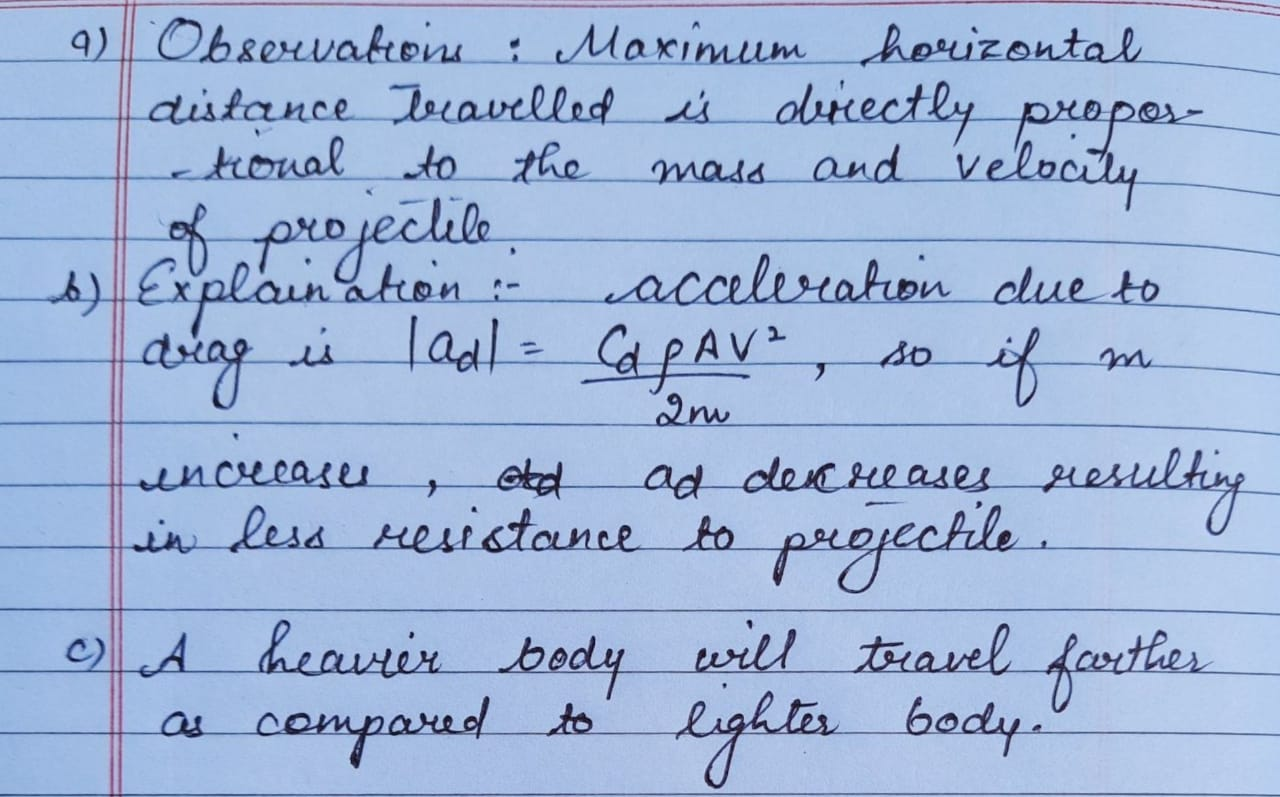 a) Observations : Maximum horizontal
distance Travelled is directly propor-
-tional to the mass and velocity
of projectile.
b) Explaination :- acceleration due to
drag is |ad| = CdρAV² / 2m , so if m
increases , ad decreases resulting
in less resistance to projectile.
c) A heavier body will travel farther
as compared to lighter body.